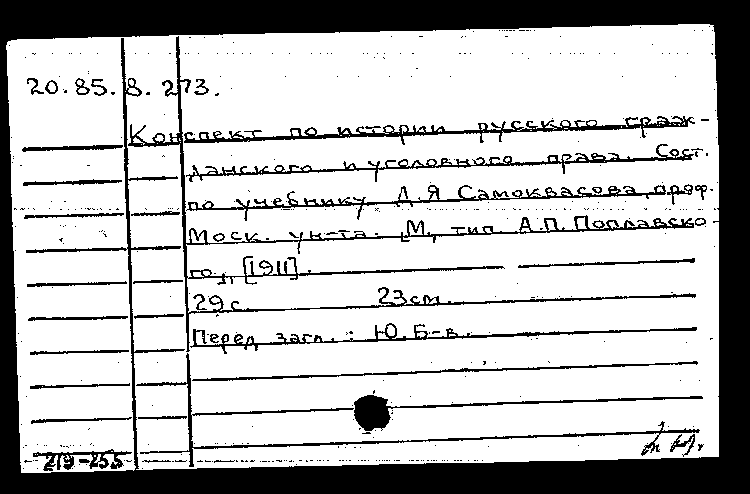 20.85.8.273.
Конспект по истории русского граж-
данского и уголовного права. Сост.
по учебнику Д.Я Самоквасова, проф.
Моск. ун-та. [М., тип А.П. Поплавско-
го], [1911].
29 с. 23 см.
Перед загл.: Ю. Б-в.
219-255